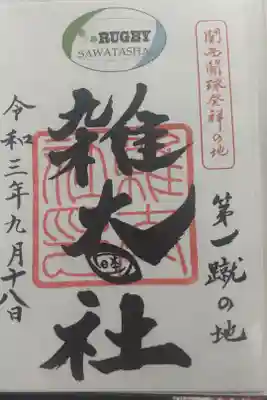 RUGBY
SAWATASHA
関西闘球発祥の地
第一蹴の地
雑太社
令和三年九月十八日